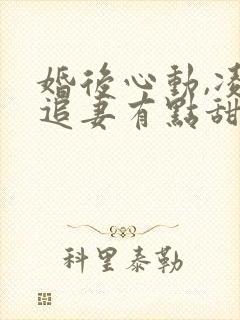 婚後心動,凌
追妻有點甜
科里泰勒